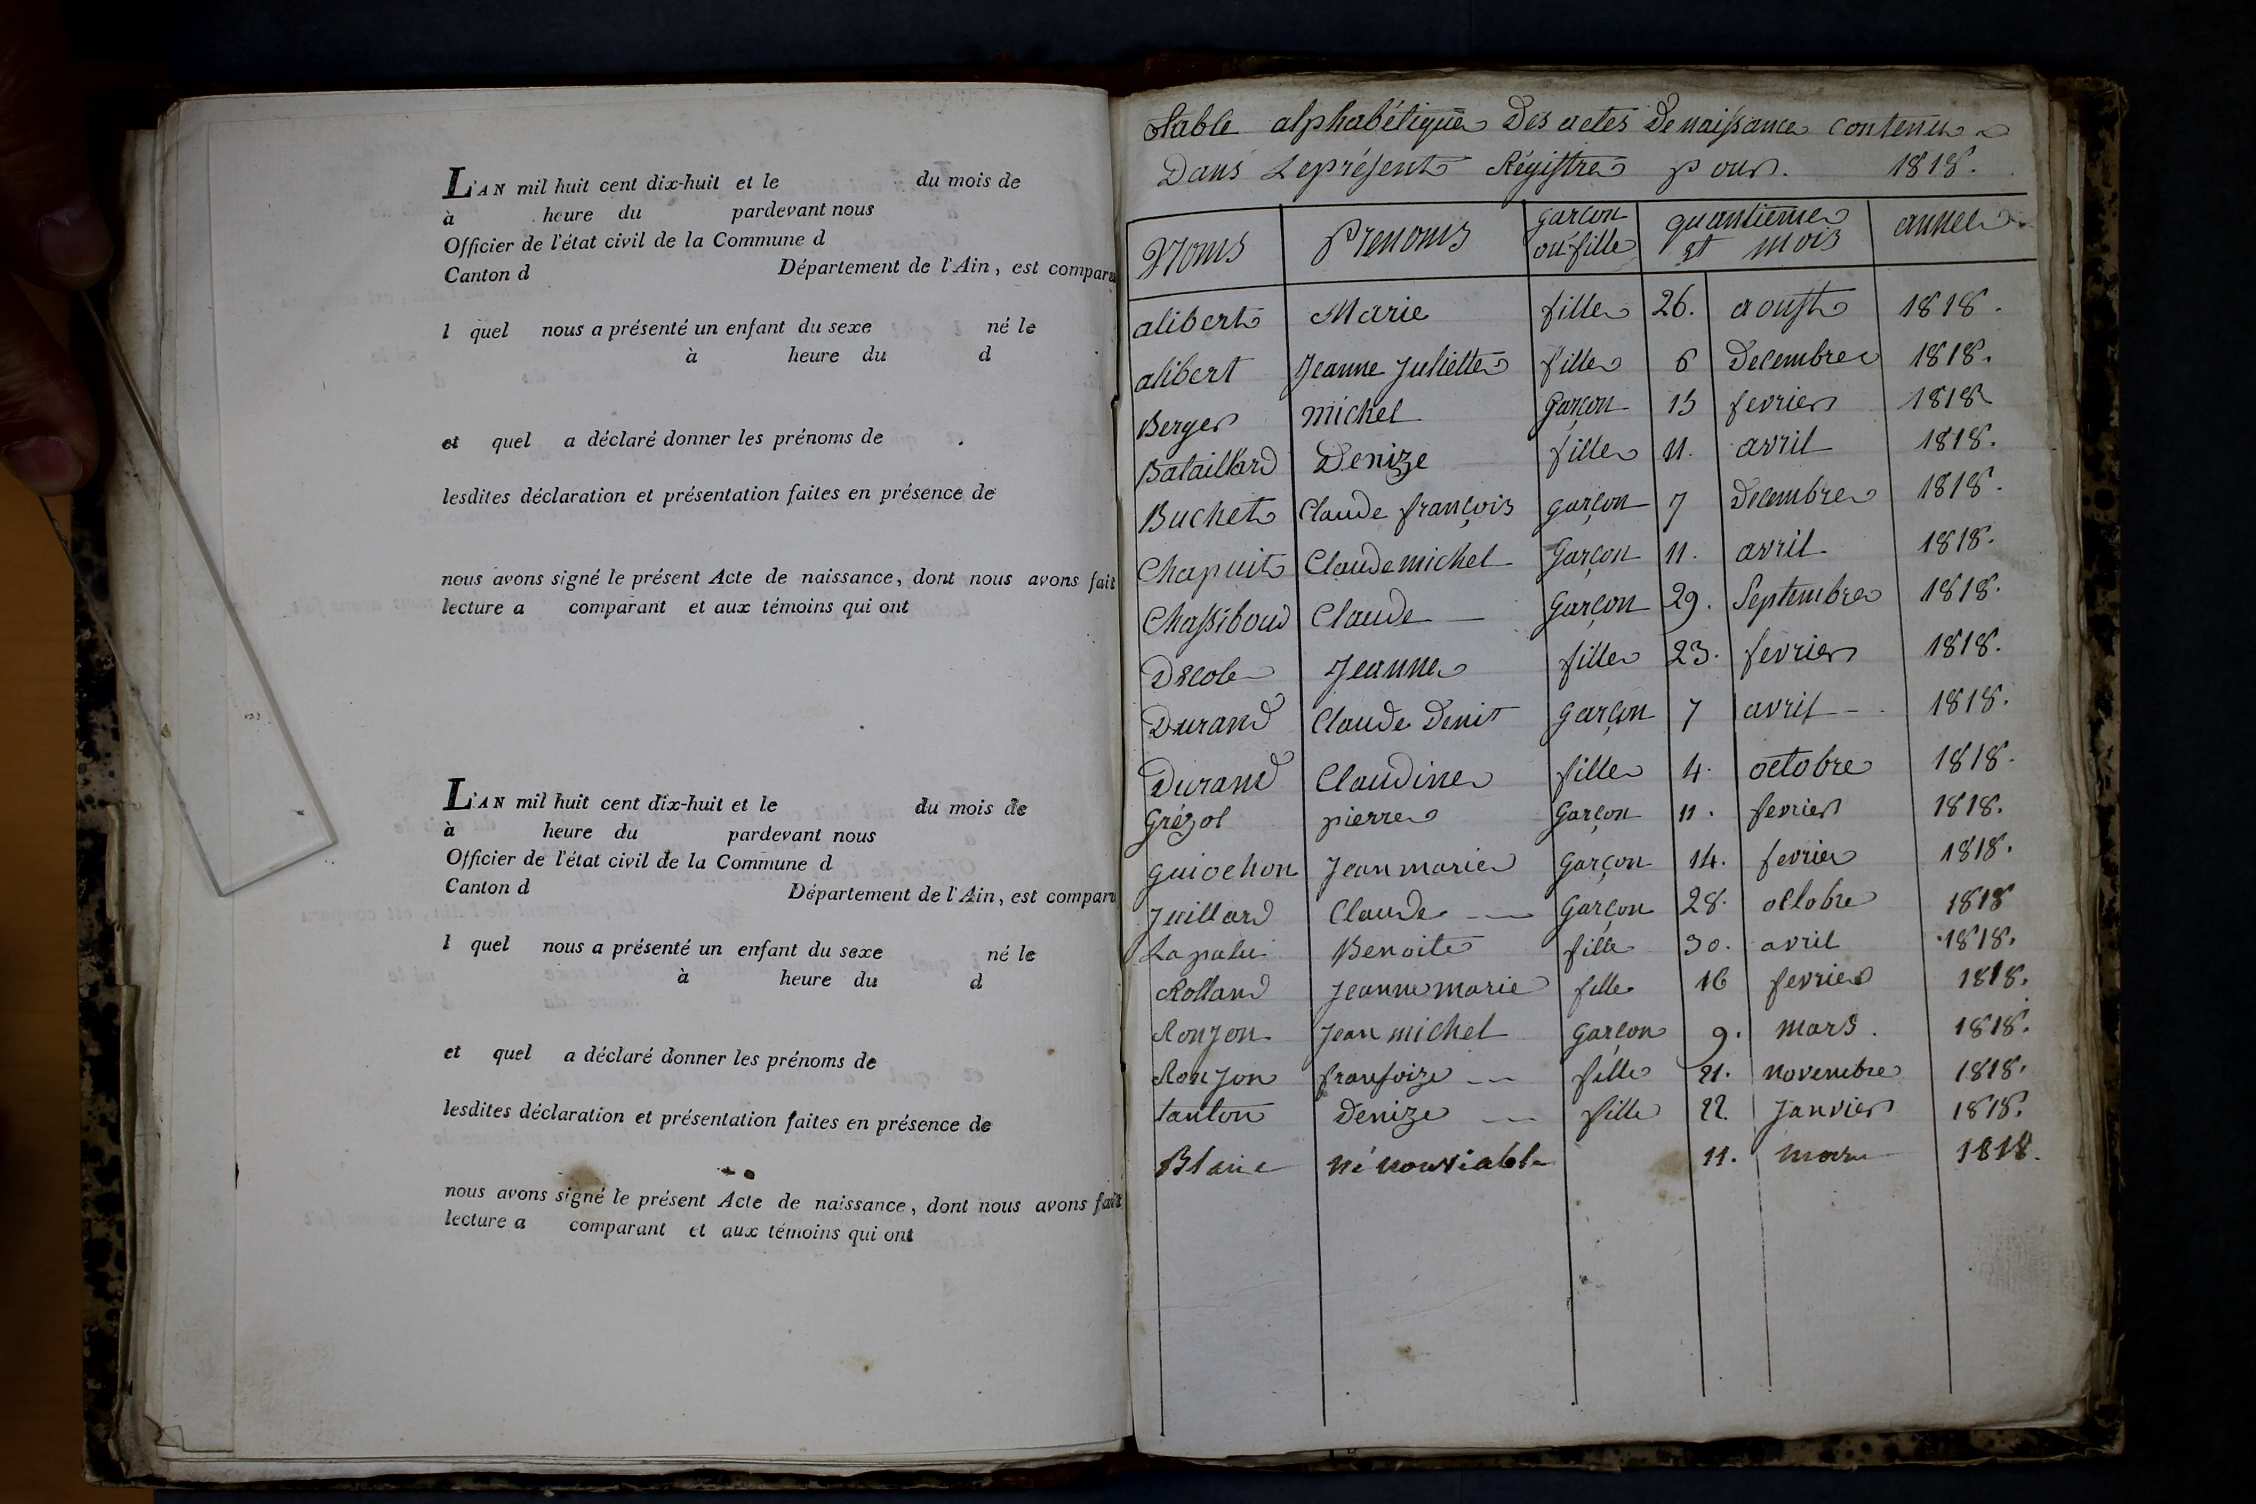 L'AN mil huit cent dix-huit et le du mois de
à heure du pardevant nous
Officier de l'état civil de la Commune d
Canton d Département de l'Ain, est comparu
l quel nous a présenté un enfant du sexe né le
à heure du d
et quel a déclaré donner les prénoms de
lesdites déclaration et présentation faites en présence de
nous avons signé le présent Acte de naissance, dont nous avons fait
lecture a comparant et aux témoins qui ont
L'AN mil huit cent dix-huit et le du mois de
à heure du pardevant nous
Officier de l'état civil de la Commune d
Canton d Département de l'Ain, est comparu
l quel nous a présenté un enfant du sexe né le
à heure du d
et quel a déclaré donner les prénoms de
lesdites déclaration et présentation faites en présence de
nous avons signé le présent Acte de naissance, dont nous avons fait
lecture a comparant et aux témoins qui ont
Table alphabétique Des actes De naissance contenu
Dans Le présent Régistre pour. 1818.
Noms Prenoms garcon ou fille quantieme et mois annee
alibert Marie fille 26. aoust 1818.
alibert Jeanne Juliette fille 6 Decembre 1818.
Berger michel Garcon 15 fevrier 1818
Bataillard Denize fille 11. avril 1818.
Buchet Claude françois garçon 7 Decembre 1818.
Chapuit Claude michel Garçon 11. avril 1818.
Chassiboud Claude Garçon 29. Septembre 1818.
Decole Jeanne fille 23. fevrier 1818.
Durand Claude Denis Garçon 7 avril 1818.
Durand Claudine fille 4. octobre 1818.
Grézol pierre Garçon 11. fevrier 1818.
guiochon Jean marie Garçon 14. fevrier 1818.
Juillard Claude Garçon 28. octobre 1818
Lapalu Benoite fille 30. avril 1818.
Rolland Jeanne marie fille 16 fevrier 1818.
Ronjon Jean michel Garcon 9. mars. 1818.
Ronjon fransoize fille 21. novembre 1818.
tanton Denize fille 22. Janvier 1818.
Blanc né nonviable 11. mars 1818.